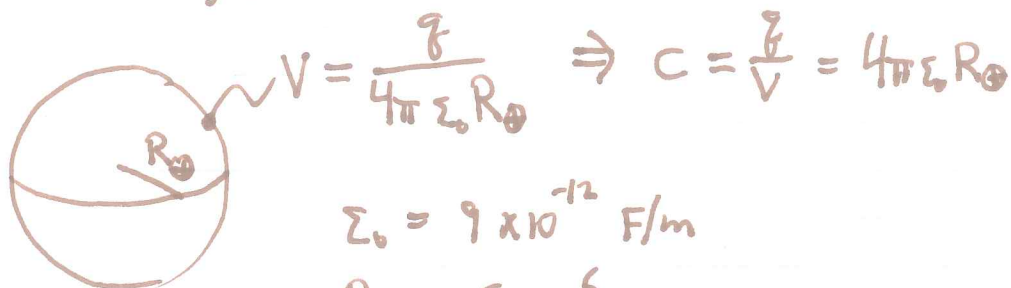 V = q / 4π ε₀ R⊕ ⇒ C = q / V = 4π ε₀ R⊕
R⊕
ε₀ = 9 x 10⁻¹² F/m